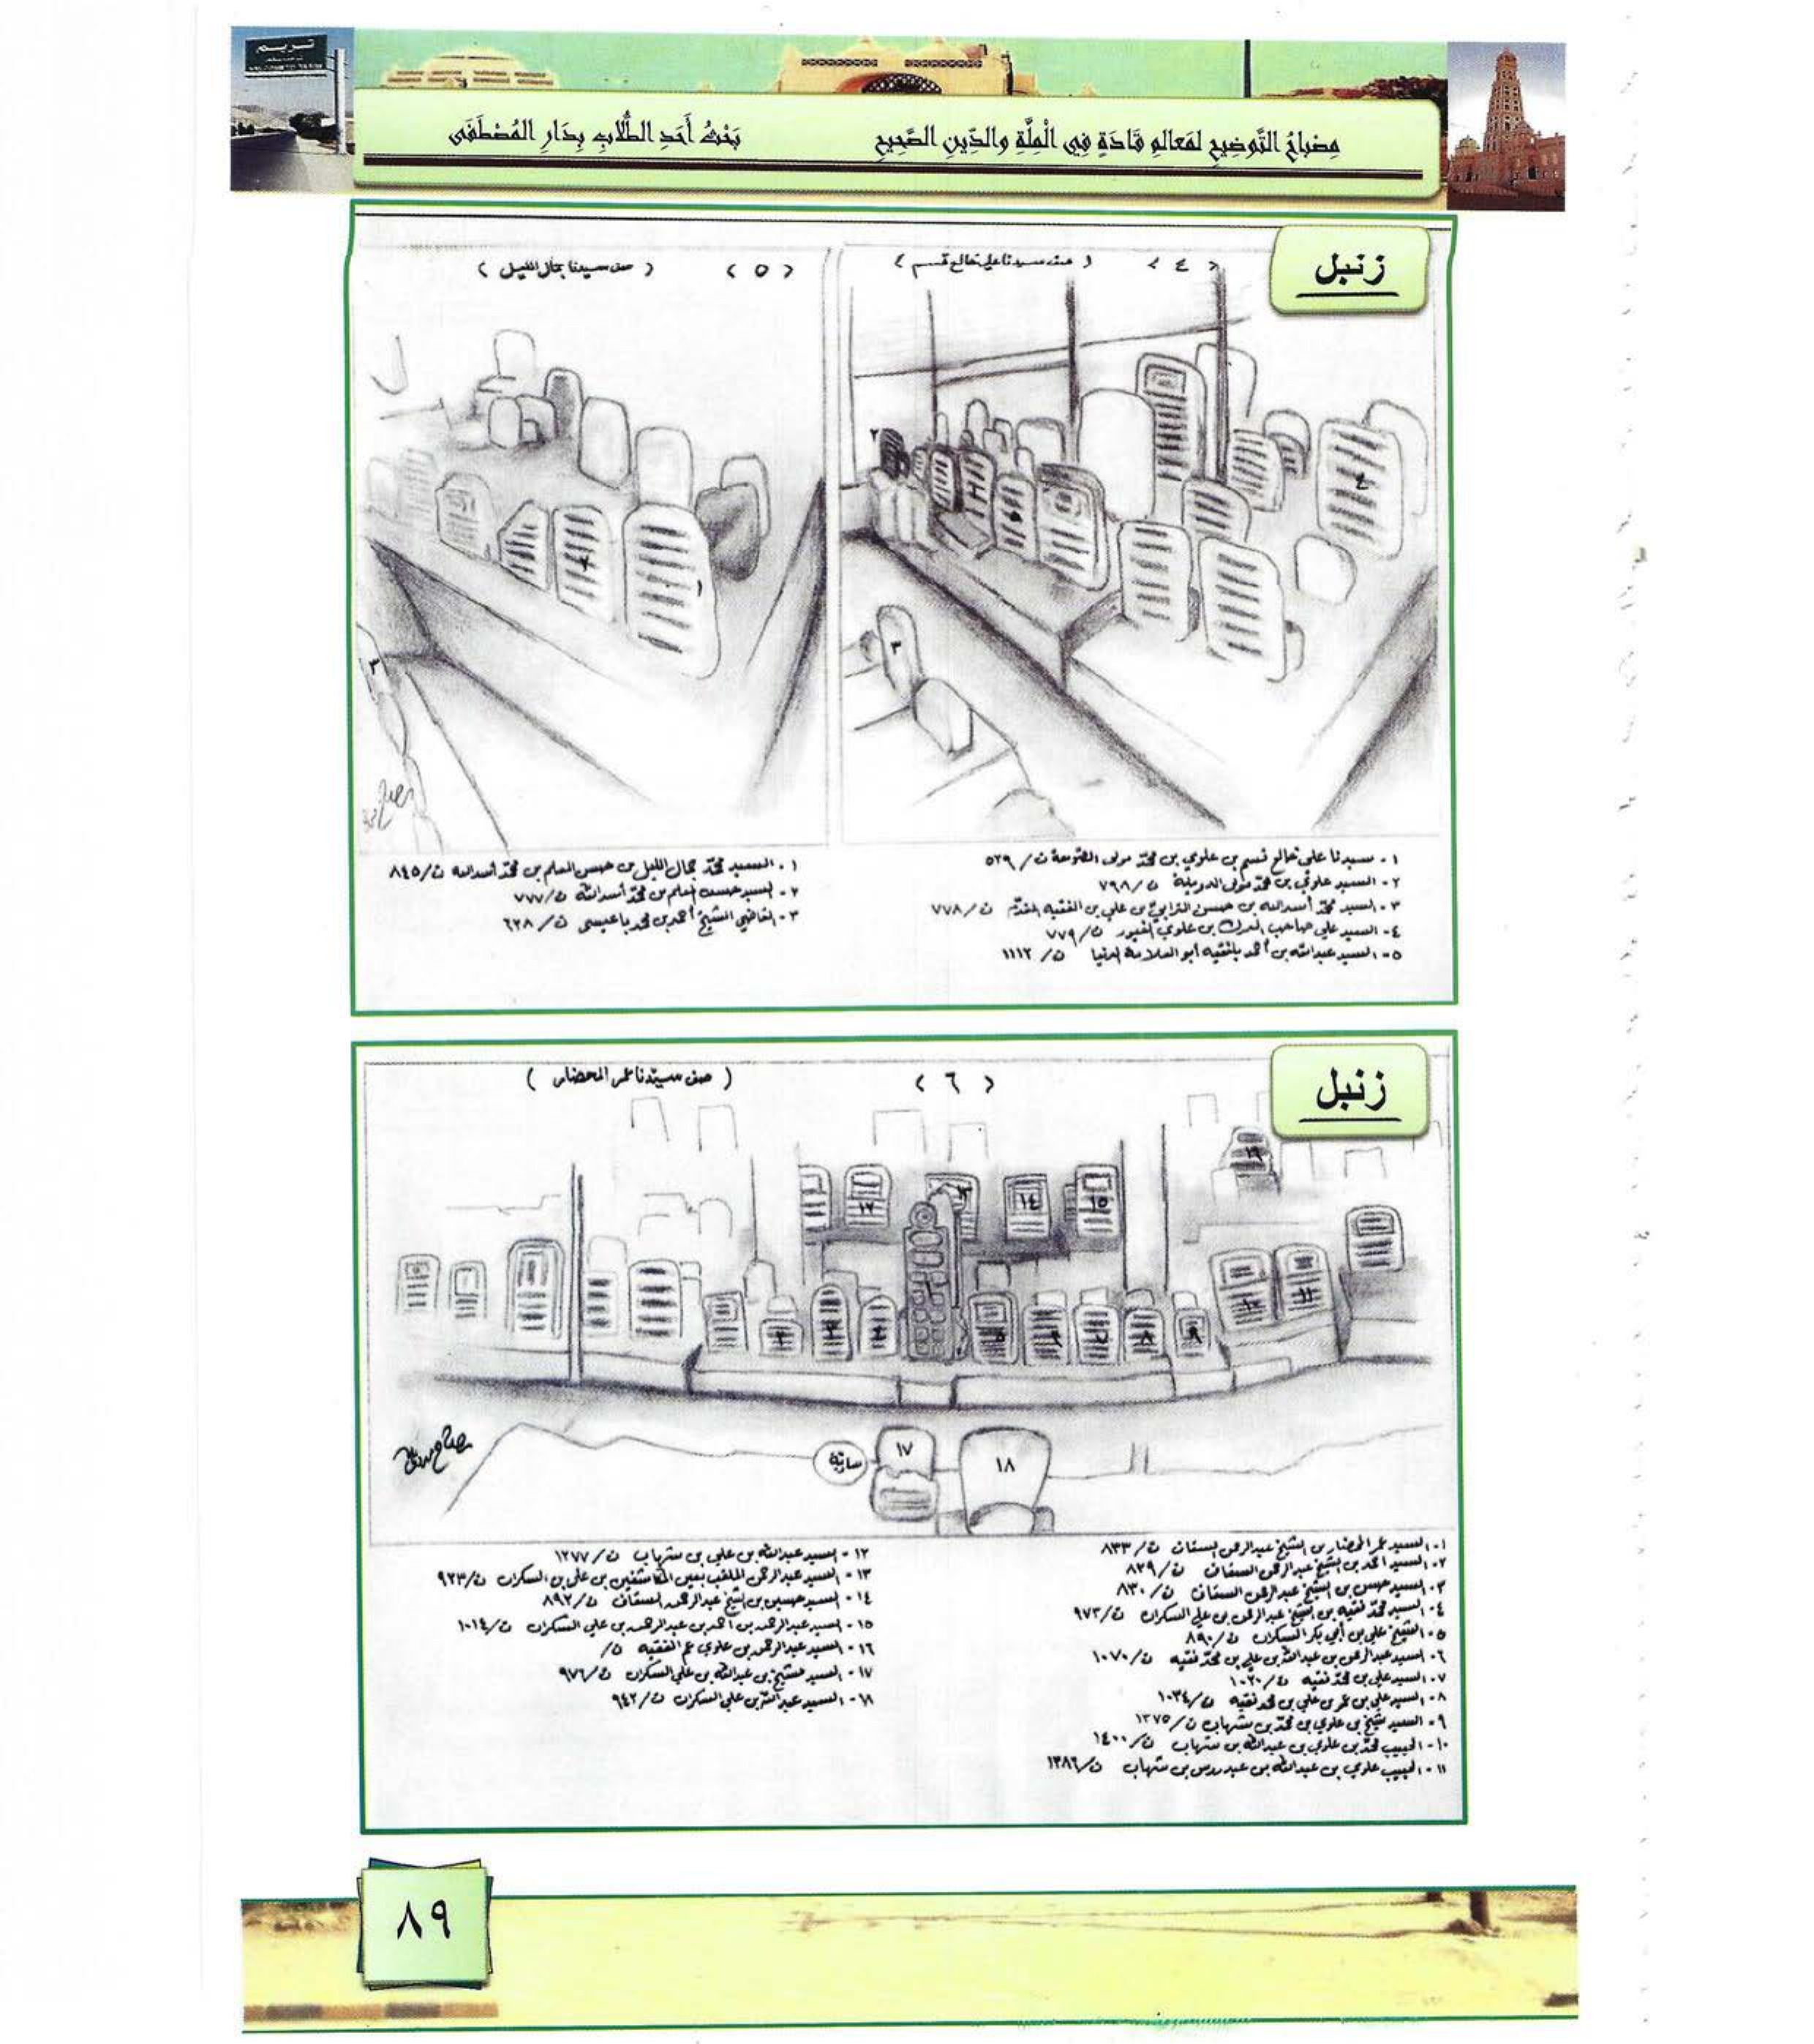 تريم
مِصْبَاحُ التَّوضِيحِ لمَعَالمِ قَادَةٍ فِي الْمِلَّةِ والدِّينِ الصَّحِيحِ
بَحْثُ أَحَدِ الطُّلَّابِ بِدَارِ المُصْطَفَى
زنبل
( ٤ )
( صف سيدنا علي خالع قسم )
( ٥ )
( صف سيدنا جمال الليل )
١ - سيدنا علي خالع قسم بن علوي بن محمد مولى الصومعة ت / ٥٢٩
٢ - السيد علوي بن محمد مولى الدويلة ت / ٧٩٨
٣ - السيد محمد أسد الله بن حسن الترابي بن علي بن الفقيه المقدم ت / ٧٧٨
٤ - السيد علي صاحب الدرك بن علوي الغيور ت / ٧٧٩
٥ - السيد عبدالله بن أحمد بلفقيه أبو العلامة الدنيا ت / ١١١٢
١ - السيد محمد جمال الليل بن حسن المعلم بن محمد أسد الله ت / ٨٤٥
٢ - السيد حسن المعلم بن محمد أسد الله ت / ٧٧٧
٣ - القاضي الشيخ أحمد بن محمد باعيسى ت / ٦٢٨
زنبل
( ٦ )
( صف سيدنا عمر المحضار )
سارية
١٧
١٨
١ - السيد عمر المحضار بن الشيخ عبدالرحمن السقاف ت / ٨٣٣
٢ - السيد أحمد بن الشيخ عبدالرحمن السقاف ت / ٨٢٩
٣ - السيد حسن بن الشيخ عبدالرحمن السقاف ت / ٨٣٠
٤ - السيد محمد فقيه بن الشيخ عبدالرحمن بن علي السكران ت / ٩٧٣
٥ - الشيخ علي بن أبي بكر السكران ت / ٨٩٠
٦ - السيد عبدالرحمن بن عبدالله بن علي بن محمد فقيه ت / ١٠٧٠
٧ - السيد علي بن محمد فقيه ت / ١٠٢٠
٨ - السيد علي بن عمر بن علي بن محمد فقيه ت / ١٠٣٤
٩ - السيد شيخ بن علوي بن محمد بن شهاب ت / ١٣٧٥
١٠ - الحبيب محمد بن علوي بن عبدالله بن شهاب ت / ١٤٠٠
١١ - الحبيب علوي بن عبدالله بن عيدروس بن شهاب ت / ١٣٨٦
١٢ - السيد عبدالله بن علي بن شهاب ت / ١٢٧٧
١٣ - السيد عبدالرحمن الملقب بعين المكاشفين بن علي بن السكران ت / ٩٢٣
١٤ - السيد حسين بن الشيخ عبدالرحمن السقاف ت / ٨٩٢
١٥ - السيد عبدالرحمن بن أحمد بن عبدالرحمن بن علي السكران ت / ١٠١٤
١٦ - السيد عبدالرحمن بن علوي عم الفقيه ت /
١٧ - السيد شيخ بن عبدالله بن علي السكران ت / ٩٧٦
١٨ - السيد عبدالله بن علي السكران ت / ٩٤٢
٨٩